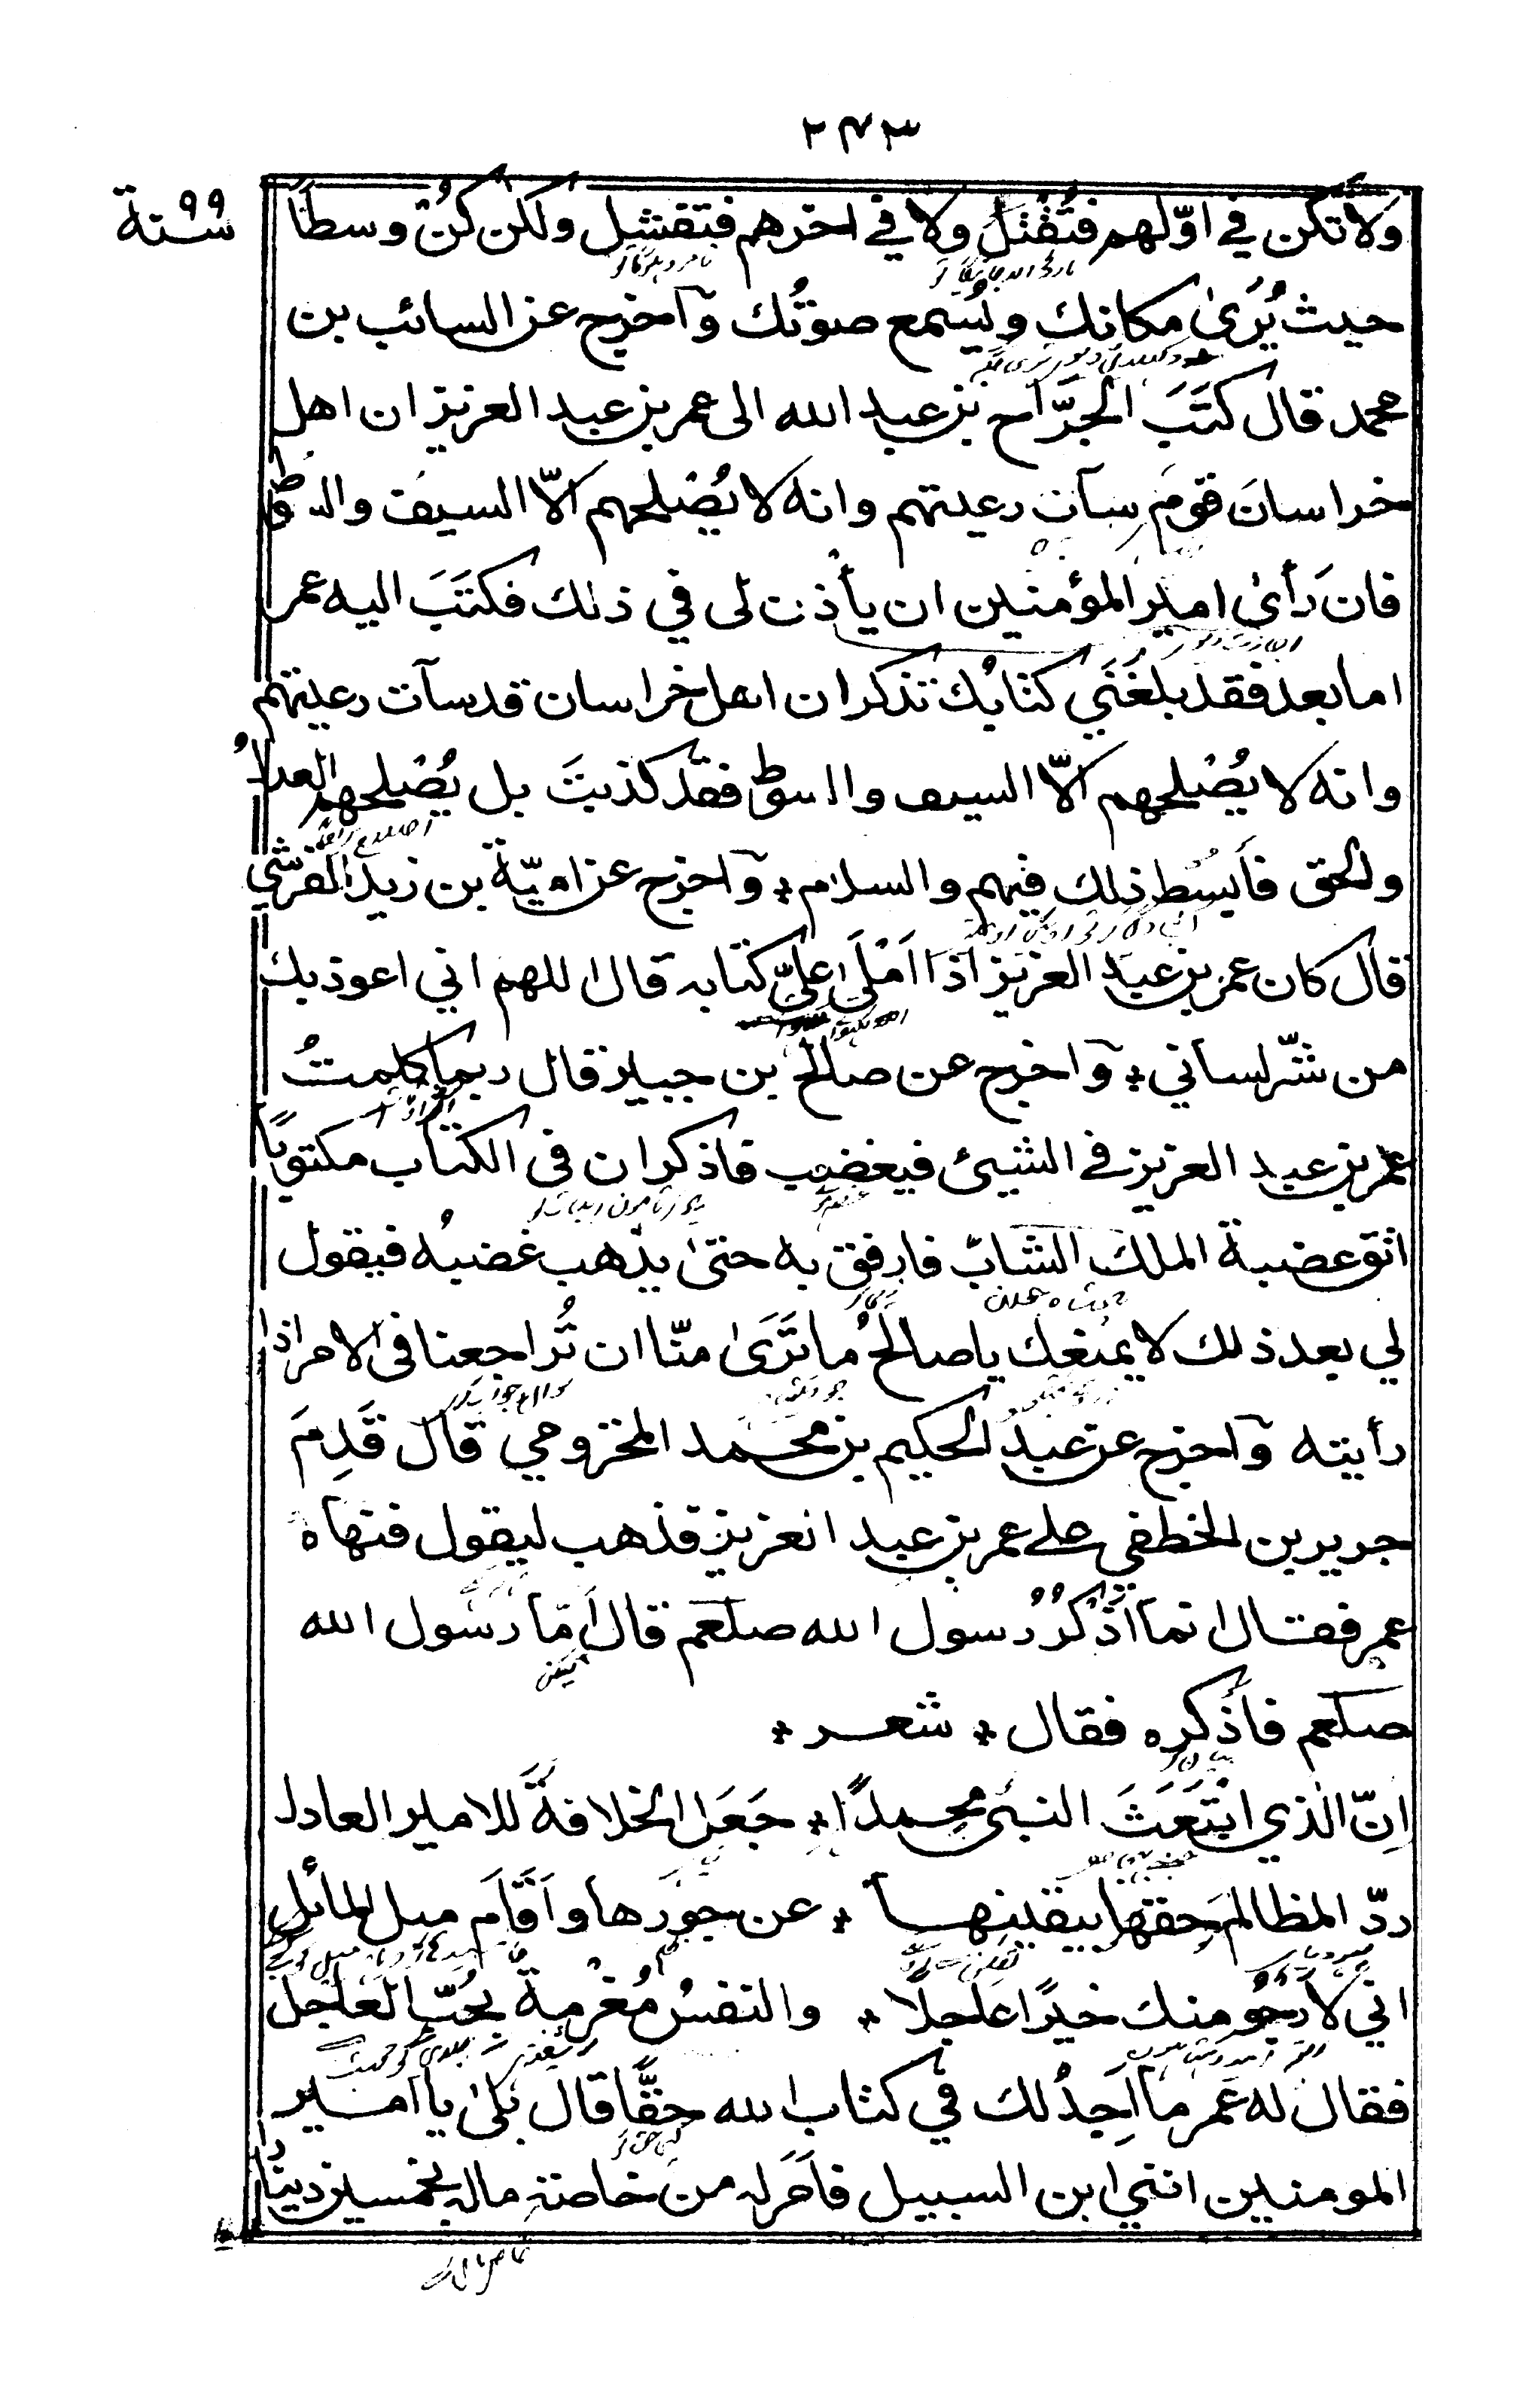 ٢٤٣
سنة ٩٩
ولا تكن في اوّلهم فتُقْتَلَ ولا في اخرهم فتفشل ولكن كُنْ وسطًا
حيث يُرىٰ مكانك ويُسمع صوتُك وآخرج عن السائب بن
محمد قال كَتَبَ الجرَّاح بن عبد الله الى عمر بن عبد العزيز ان اهل
خراسانَ قوم سآت رعيتهم وانه لا يُصْلحهم الّا السيف والسوط
فان رَأىٰ امير المؤمنين ان يأذن لى في ذلك فكتَبَ اليه عمر
اما بعد فقد بلغنَي كتابُك تذكر ان اهل خراسان قد سآت رعيتهم
وانه لا يُصْلحهم الّا السيف والسوط فقد كذبتَ بل يُصْلحهم العدلُ
والحق فأبسُط ذلك فيهم والسلام * وآخرج عن اميّة بن زيد القرشي
قال كان عمر بن عبد العزيز اذا اَمْلَىٰ علىّ كتابه قال اللهم اني اعوذ بك
من شرّ لساني * وآخرج عن صالح بن جبير قال ربما كلمتُ
عمر بن عبد العزيز في الشيئ فيغضب فاذكر ان فى الكتاب مكتوبًا
اتق غضبة الملك الشابّ فارفق به حتىٰ يذهب غضبُه فيقول
لي بعد ذلك لا يمنعك يا صالحُ ما تَرَىٰ منّا ان تُراجعنا فى الامر اذا
رأيته وآخرج عن عبد الحكيم بن محمد المخزومي قال قَدِمَ
جرير بن الخطفي على عمر بن عبد العزيز فذهب ليقول فنهاه
عمر فقال انما اَذْكُرُ رسول الله صلعم قال اَمّا رسول الله
صلعم فأذكره فقال * شعر *
اِنّ الذي ابْتَعَثَ النبى محمدًا * جَعَلَ الخلافةَ للامير العادل
ردّ المظالم حقها بيقينها * عن جورها واَقَامَ ميل المائل
اني لارجو منك خيرًا عاجلًا * والنفسُ مُغْرمةٌ بحُبّ العاجل
فقال له عمر ما اَجِدُ لك في كتاب الله حقًّا قال بَلىٰ يا امير
المومنين انني ابن السبيل فأمر له من خاصّة ماله بخمسين دينارا